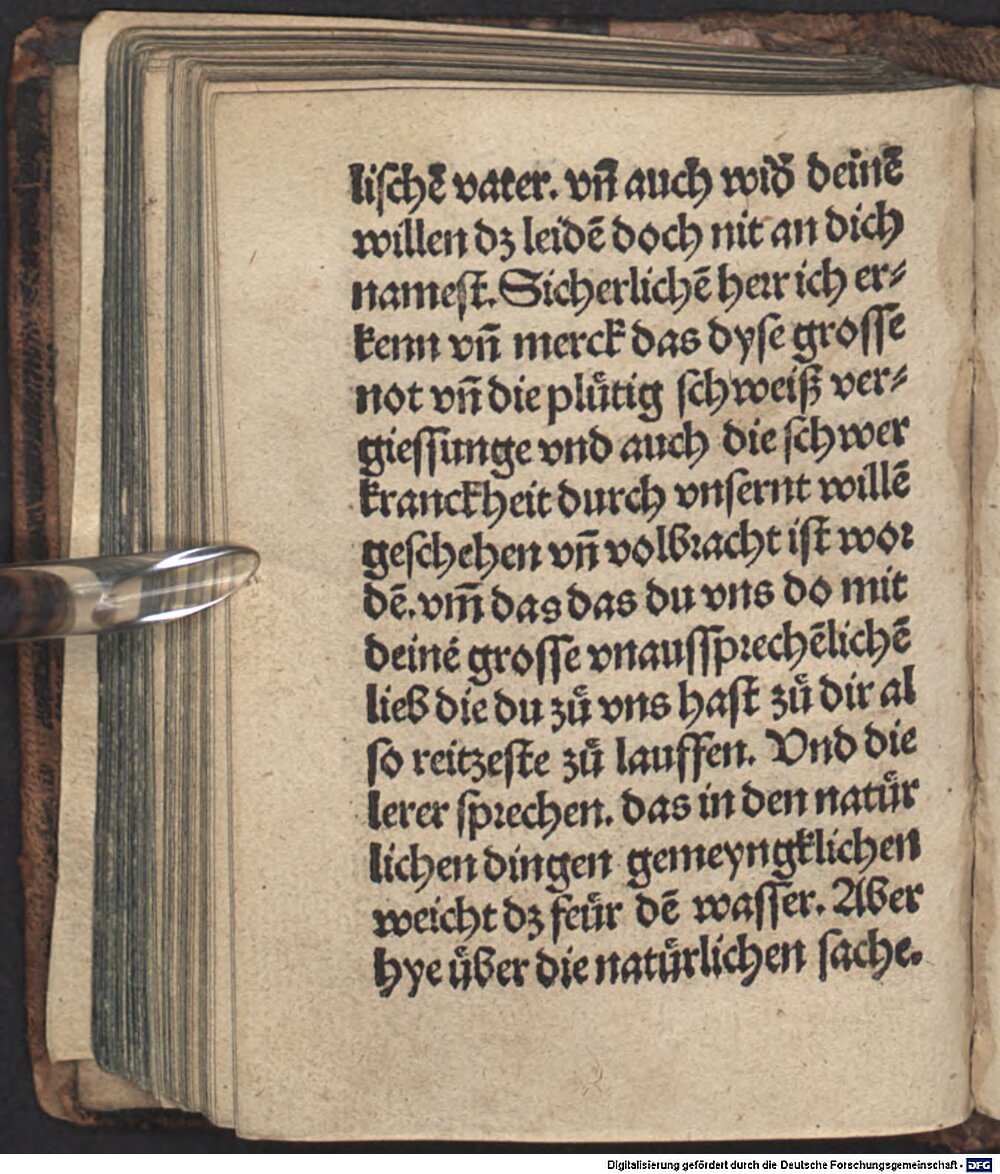 lischē vater. vñ auch wid̄ deinē
willen dz leidē doch nit an dich
namest. Sicherlichē herr ich er⸗
kenn vñ merck das dyse grosse
not vñ die plůtig schweiß ver⸗
giessunge vnd auch die schwer
kranckheit durch vnsernt willē
geschehen vñ volbracht ist wor
dē. vm̄ das das du vns do mit
deiné grosse vnaussprechēlichē
lieb die du zů vns hast zů dir al
so reitzeste zů lauffen. Vnd die
lerer sprechen. das in den natůr
lichen dingen gemeyngklichen
weicht dz feůr dē wasser. Aber
hye ůber die natůrlichen sache.
Digitalisierung gefördert durch die Deutsche Forschungsgemeinschaft - DFG